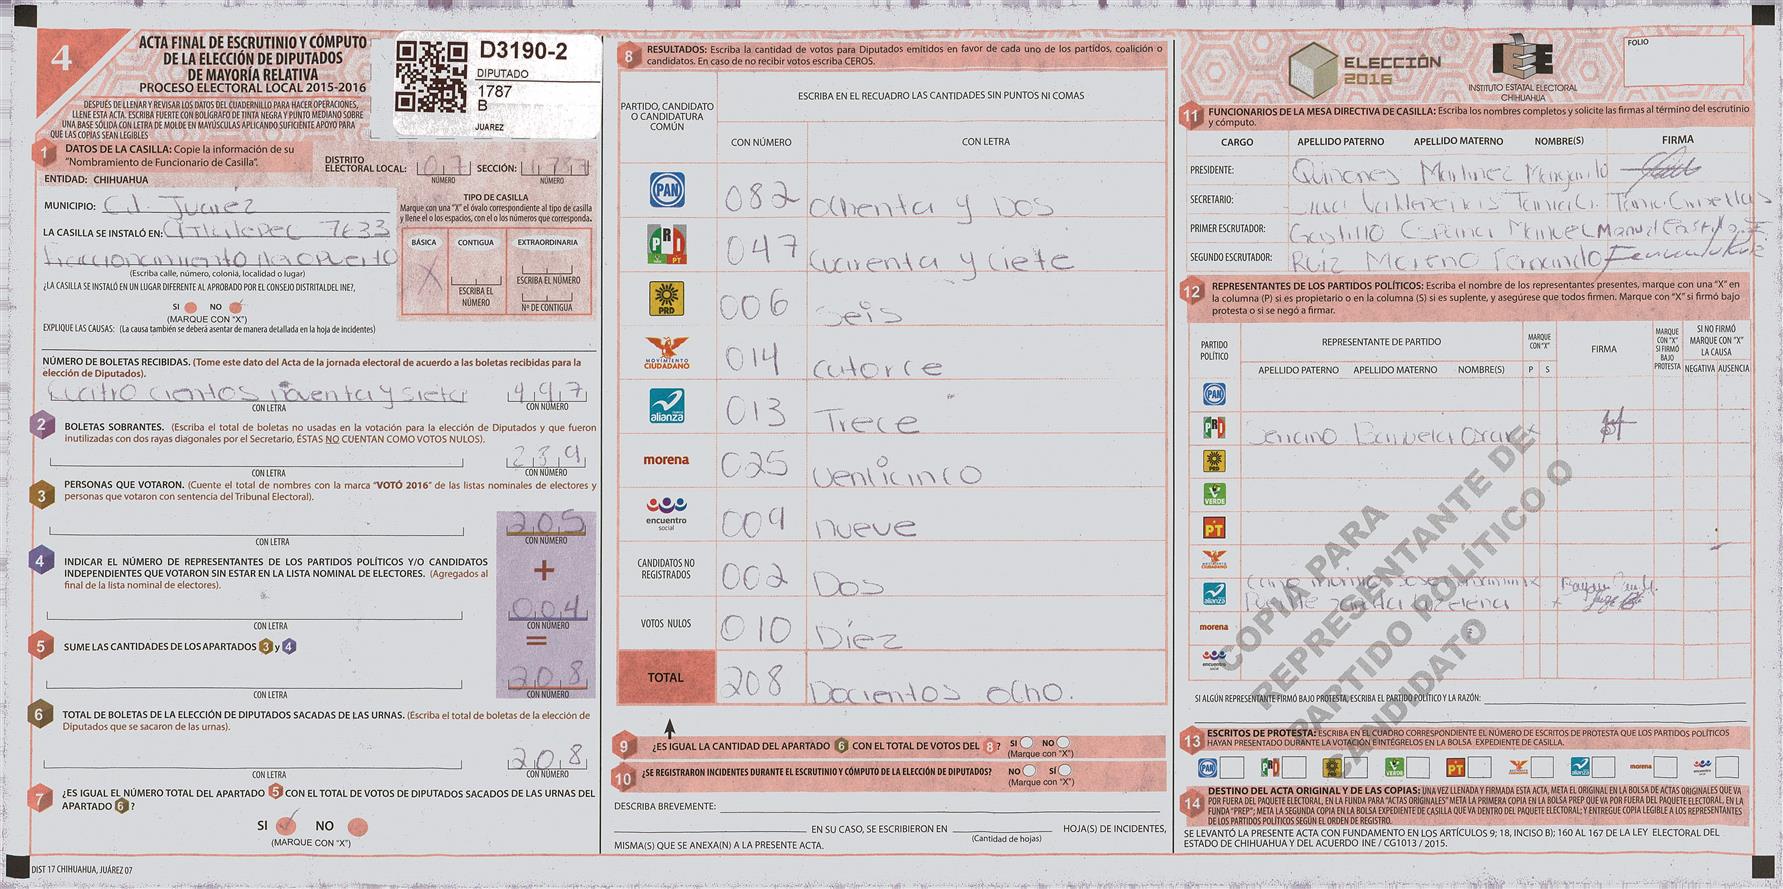 4
ACTA FINAL DE ESCRUTINIO Y CÓMPUTO
DE LA ELECCIÓN DE DIPUTADOS
DE MAYORÍA RELATIVA
PROCESO ELECTORAL LOCAL 2015-2016
DESPUÉS DE LLENAR Y REVISAR LOS DATOS DEL CUADERNILLO PARA HACER OPERACIONES,
LLENE ESTA ACTA. ESCRIBA FUERTE CON BOLÍGRAFO DE TINTA NEGRA Y PUNTO MEDIANO SOBRE
UNA BASE SÓLIDA CON LETRA DE MOLDE EN MAYÚSCULAS APLICANDO SUFICIENTE APOYO PARA
QUE LAS COPIAS SEAN LEGIBLES
D3190-2
DIPUTADO
1787
B
JUAREZ
1 DATOS DE LA CASILLA: Copie la información de su
"Nombramiento de Funcionario de Casilla".
DISTRITO
ELECTORAL LOCAL: 07 SECCIÓN:
NÚMERO NÚMERO
ENTIDAD: CHIHUAHUA
MUNICIPIO: Cd. Juarez
LA CASILLA SE INSTALÓ EN: 7633
Fraccionamiento Aeropuerto
(Escriba calle, número, colonia, localidad o lugar)
¿LA CASILLA SE INSTALÓ EN UN LUGAR DIFERENTE AL APROBADO POR EL CONSEJO DISTRITALDEL INE?,
SI NO
(MARQUE CON "X")
EXPLIQUE LAS CAUSAS: (La causa también se deberá asentar de manera detallada en la hoja de incidentes)
TIPO DE CASILLA
Marque con una "X" el óvalo correspondiente al tipo de casilla
y llene el o los espacios, con el o los números que corresponda.
BÁSICA CONTIGUA EXTRAORDINARIA
X
ESCRIBA EL NÚMERO
ESCRIBA EL
NÚMERO
Nº DE CONTIGUA
NÚMERO DE BOLETAS RECIBIDAS. (Tome este dato del Acta de la jornada electoral de acuerdo a las boletas recibidas para la
elección de Diputados).
Cuatro cientos noventa y siete 497
CON LETRA CON NÚMERO
2 BOLETAS SOBRANTES. (Escriba el total de boletas no usadas en la votación para la elección de Diputados y que fueron
inutilizadas con dos rayas diagonales por el Secretario, ÉSTAS NO CUENTAN COMO VOTOS NULOS).
239
CON LETRA CON NÚMERO
3 PERSONAS QUE VOTARON. (Cuente el total de nombres con la marca "VOTÓ 2016" de las listas nominales de electores y
personas que votaron con sentencia del Tribunal Electoral).
205
CON LETRA CON NÚMERO
4 INDICAR EL NÚMERO DE REPRESENTANTES DE LOS PARTIDOS POLÍTICOS Y/O CANDIDATOS
INDEPENDIENTES QUE VOTARON SIN ESTAR EN LA LISTA NOMINAL DE ELECTORES. (Agregados al
final de la lista nominal de electores).
+
004
CON LETRA CON NÚMERO
=
5 SUME LAS CANTIDADES DE LOS APARTADOS 3 y 4
208
CON LETRA CON NÚMERO
6 TOTAL DE BOLETAS DE LA ELECCIÓN DE DIPUTADOS SACADAS DE LAS URNAS. (Escriba el total de boletas de la elección de
Diputados que se sacaron de las urnas).
208
CON LETRA CON NÚMERO
7 ¿ES IGUAL EL NÚMERO TOTAL DEL APARTADO 5 CON EL TOTAL DE VOTOS DE DIPUTADOS SACADOS DE LAS URNAS DEL
APARTADO 6 ?
SI NO
(MARQUE CON "X")
DIST 17 CHIHUAHUA, JUÁREZ 07
8 RESULTADOS: Escriba la cantidad de votos para Diputados emitidos en favor de cada uno de los partidos, coalición o
candidatos. En caso de no recibir votos escriba CEROS.
PARTIDO, CANDIDATO
O CANDIDATURA
COMÚN
ESCRIBA EN EL RECUADRO LAS CANTIDADES SIN PUNTOS NI COMAS
CON NÚMERO CON LETRA
PAN 082 Ochenta y Dos
PRI PT 047 Cuarenta y Ciete
PRD 006 Seis
MOVIMIENTO CIUDADANO 014 Catorce
alianza 013 Trece
morena 025 Venticinco
encuentro social 009 nueve
CANDIDATOS NO
REGISTRADOS 002 Dos
VOTOS NULOS 010 Diez
TOTAL 208 Docientos ocho.
9 ¿ES IGUAL LA CANTIDAD DEL APARTADO 6 CON EL TOTAL DE VOTOS DEL 8 ? SI NO
(Marque con "X")
10 ¿SE REGISTRARON INCIDENTES DURANTE EL ESCRUTINIO Y CÓMPUTO DE LA ELECCIÓN DE DIPUTADOS? NO SÍ
(Marque con "X")
DESCRIBA BREVEMENTE:
EN SU CASO, SE ESCRIBIERON EN HOJA(S) DE INCIDENTES,
(Cantidad de hojas)
MISMA(S) QUE SE ANEXA(N) A LA PRESENTE ACTA.
ELECCIÓN
2016
IEE
INSTITUTO ESTATAL ELECTORAL
CHIHUAHUA
FOLIO
11 FUNCIONARIOS DE LA MESA DIRECTIVA DE CASILLA: Escriba los nombres completos y solicite las firmas al término del escrutinio
y cómputo.
CARGO APELLIDO PATERNO APELLIDO MATERNO NOMBRE(S) FIRMA
PRESIDENTE: Quiñones Martinez Margarito
SECRETARIO:
PRIMER ESCRUTADOR: Castillo España Manuel
SEGUNDO ESCRUTADOR: Ruiz Moreno Fernando
12 REPRESENTANTES DE LOS PARTIDOS POLÍTICOS: Escriba el nombre de los representantes presentes, marque con una "X" en
la columna (P) si es propietario o en la columna (S) si es suplente, y asegúrese que todos firmen. Marque con "X" si firmó bajo
protesta o si se negó a firmar.
PARTIDO
POLÍTICO
REPRESENTANTE DE PARTIDO
MARQUE
CON "X"
FIRMA
MARQUE
CON "X"
SI FIRMÓ
BAJO
PROTESTA
SI NO FIRMÓ
MARQUE CON "X"
LA CAUSA
APELLIDO PATERNO APELLIDO MATERNO NOMBRE(S) P S NEGATIVA AUSENCIA
PAN
PRI
PRD
VERDE
PT
MOVIMIENTO CIUDADANO
alianza
morena
encuentro social
COPIA PARA
REPRESENTANTE DE
PARTIDO POLÍTICO O
CANDIDATO
SI ALGÚN REPRESENTANTE FIRMÓ BAJO PROTESTA, ESCRIBA EL PARTIDO POLÍTICO Y LA RAZÓN:
13 ESCRITOS DE PROTESTA: ESCRIBA EN EL CUADRO CORRESPONDIENTE EL NÚMERO DE ESCRITOS DE PROTESTA QUE LOS PARTIDOS POLÍTICOS
HAYAN PRESENTADO DURANTE LA VOTACIÓN E INTÉGRELOS EN LA BOLSA EXPEDIENTE DE CASILLA.
PAN PRI PRD VERDE PT MOVIMIENTO CIUDADANO alianza morena encuentro social
14 DESTINO DEL ACTA ORIGINAL Y DE LAS COPIAS: UNA VEZ LLENADA Y FIRMADA ESTA ACTA, META EL ORIGINAL EN LA BOLSA DE ACTAS ORIGINALES QUE VA
POR FUERA DEL PAQUETE ELECTORAL, EN LA FUNDA PARA "ACTAS ORIGINALES" META LA PRIMERA COPIA EN LA BOLSA PREP QUE VA POR FUERA DEL PAQUETE ELECTORAL, EN LA
FUNDA "PREP"; META LA SEGUNDA COPIA EN LA BOLSA EXPEDIENTE DE CASILLA QUE VA DENTRO DEL PAQUETE ELECTORAL; Y ENTREGUE COPIA LEGIBLE A LOS REPRESENTANTES
DE LOS PARTIDOS POLÍTICOS SEGÚN EL ORDEN DE REGISTRO.
SE LEVANTÓ LA PRESENTE ACTA CON FUNDAMENTO EN LOS ARTÍCULOS 9; 18, INCISO B); 160 AL 167 DE LA LEY ELECTORAL DEL
ESTADO DE CHIHUAHUA Y DEL ACUERDO INE / CG1013 / 2015.